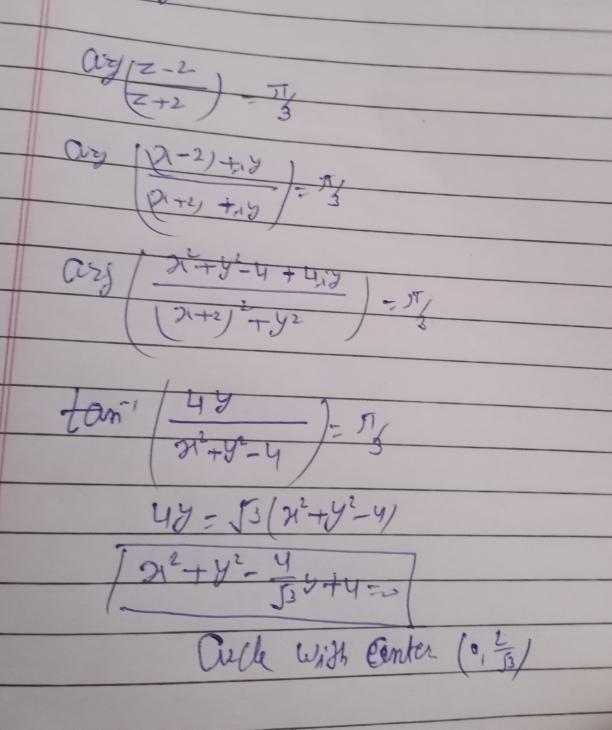 arg((z-2)/(z+2)) = π/3
arg(((x-2)+iy)/((x+2)+iy)) = π/3
arg((x²+y²-4+4iy)/((x+2)²+y²)) = π/3
tan⁻¹(4y/(x²+y²-4)) = π/3
4y = √3(x²+y²-4)
x²+y²-4/√3 y+4=0
Circle with Center (0, 2/√3)